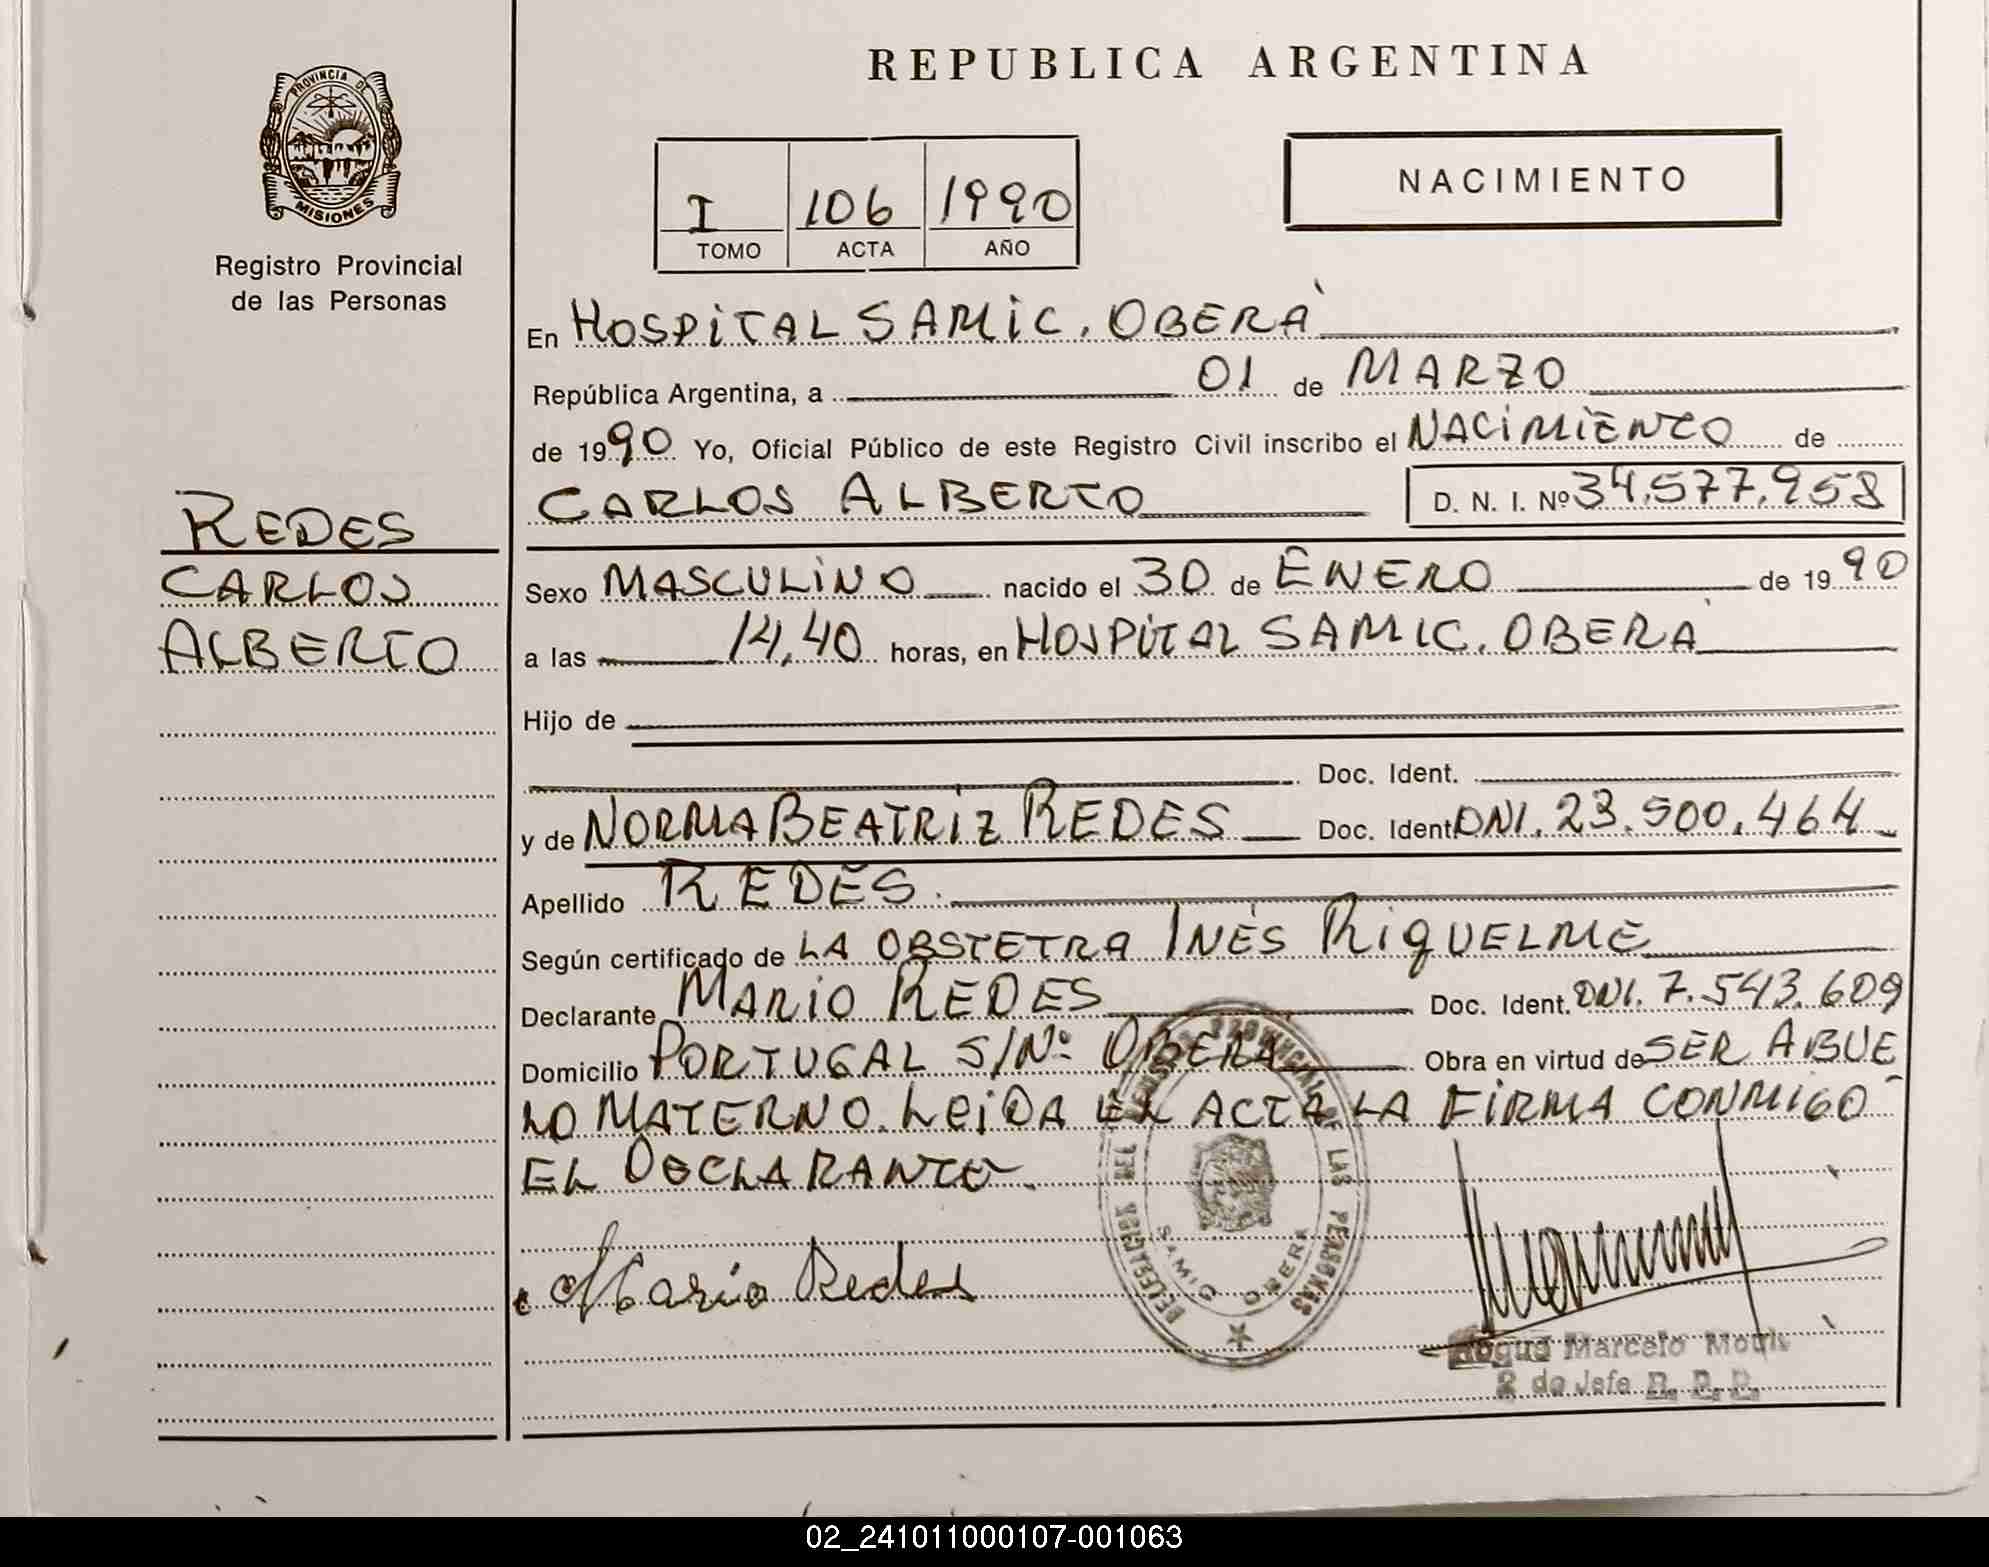 REPUBLICA ARGENTINA
PROVINCIA DE
MISIONES
Registro Provincial
de las Personas
I 106 1990
TOMO ACTA AÑO
NACIMIENTO
En HOSPITAL SAMIC. OBERÁ
República Argentina, a 01 de MARZO
de 1990 Yo, Oficial Público de este Registro Civil inscribo el NACIMIENTO de
CARLOS ALBERTO D. N. I. Nº 34.577.958
REDES
CARLOS
ALBERTO
Sexo MASCULINO nacido el 30 de ENERO de 1990
a las 14,40 horas, en HOSPITAL SAMIC. OBERÁ
Hijo de
Doc. Ident.
y de NORMA BEATRIZ REDES Doc. Ident. DNI. 23.500.464
Apellido REDES.
Según certificado de LA OBSTETRA INÉS RIQUELME
Declarante MARIO REDES Doc. Ident. DNI. 7.543.609
Domicilio PORTUGAL S/Nº OBERÁ Obra en virtud de SER ABUE
LO MATERNO. LEIDA EL ACTA LA FIRMA CONMIGO
EL DECLARANTE.
Mario Redes
DELEGACION DEL REGISTRO PROVINCIAL DE LAS PERSONAS
SAMIC OBERA
Roque Marcelo
2 do Jefe R. P. P.
02_241011000107-001063